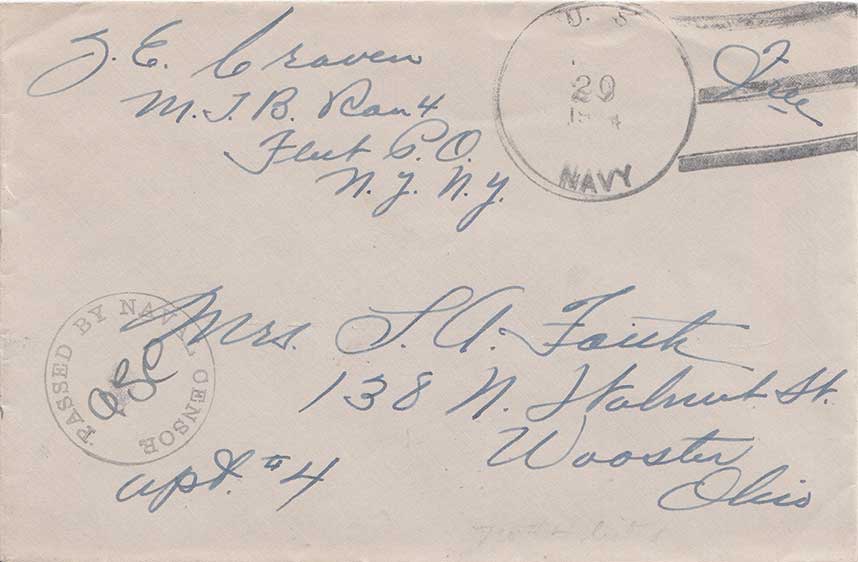 J. E. Craven
M. T. B. Ron 4
Fleet P. O.
N. Y. N. Y.
U. S.
29
NAVY
Free
PASSED BY NAVAL CENSOR
Mrs. S. A. Faith
138 N. Walnut St.
Wooster
Ohio
apt. #4